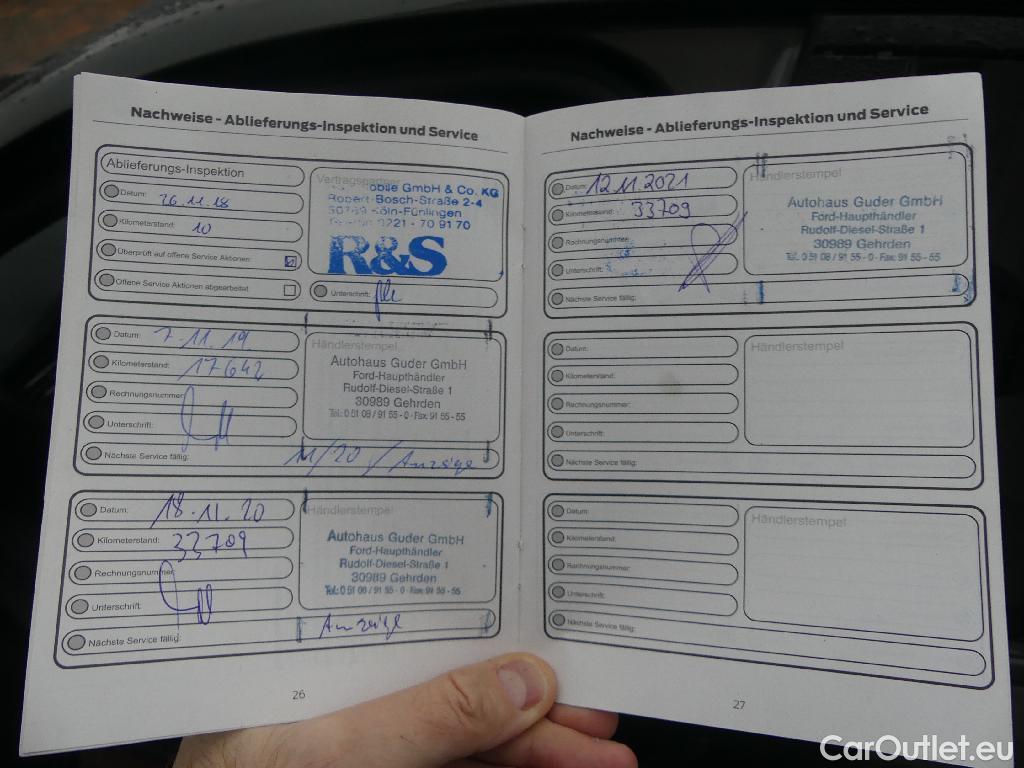 Nachweise - Ablieferungs-Inspektion und Service
Ablieferungs-Inspektion
Datum: 26.11.18
Kilometerstand: 10
Überprüft auf offene Service Aktionen:
Offene Service Aktionen abgearbeitet
Vertragspartner
obile GmbH & Co. KG
Robert-Bosch-Straße 2-4
50769 Köln-Fühlingen
Telefon 0221 - 70 91 70
R&S
Unterschrift:
Datum: 7.11.19
Kilometerstand: 17642
Rechnungsnummer:
Unterschrift:
Nächste Service fällig: 11/20 / Anzeige
Händlerstempel
Autohaus Guder GmbH
Ford-Haupthändler
Rudolf-Diesel-Straße 1
30989 Gehrden
Tel.: 0 51 08 / 91 55 - 0 · Fax: 91 55 - 55
Datum: 18.11.20
Kilometerstand: 33709
Rechnungsnummer:
Unterschrift:
Nächste Service fällig: Anzeige
Händlerstempel
Autohaus Guder GmbH
Ford-Haupthändler
Rudolf-Diesel-Straße 1
30989 Gehrden
Tel.: 0 51 08 / 91 55 - 0 · Fax: 91 55 - 55
26
Nachweise - Ablieferungs-Inspektion und Service
Datum: 12.11.2021
Kilometerstand: 33709
Rechnungsnummer:
Unterschrift:
Nächste Service fällig:
Händlerstempel
Autohaus Guder GmbH
Ford-Haupthändler
Rudolf-Diesel-Straße 1
30989 Gehrden
Tel.: 0 51 08 / 91 55 - 0 · Fax: 91 55 - 55
Datum:
Kilometerstand:
Rechnungsnummer:
Unterschrift:
Nächste Service fällig:
Händlerstempel
Datum:
Kilometerstand:
Rechnungsnummer:
Unterschrift:
Nächste Service fällig:
Händlerstempel
27
CarOutlet.eu